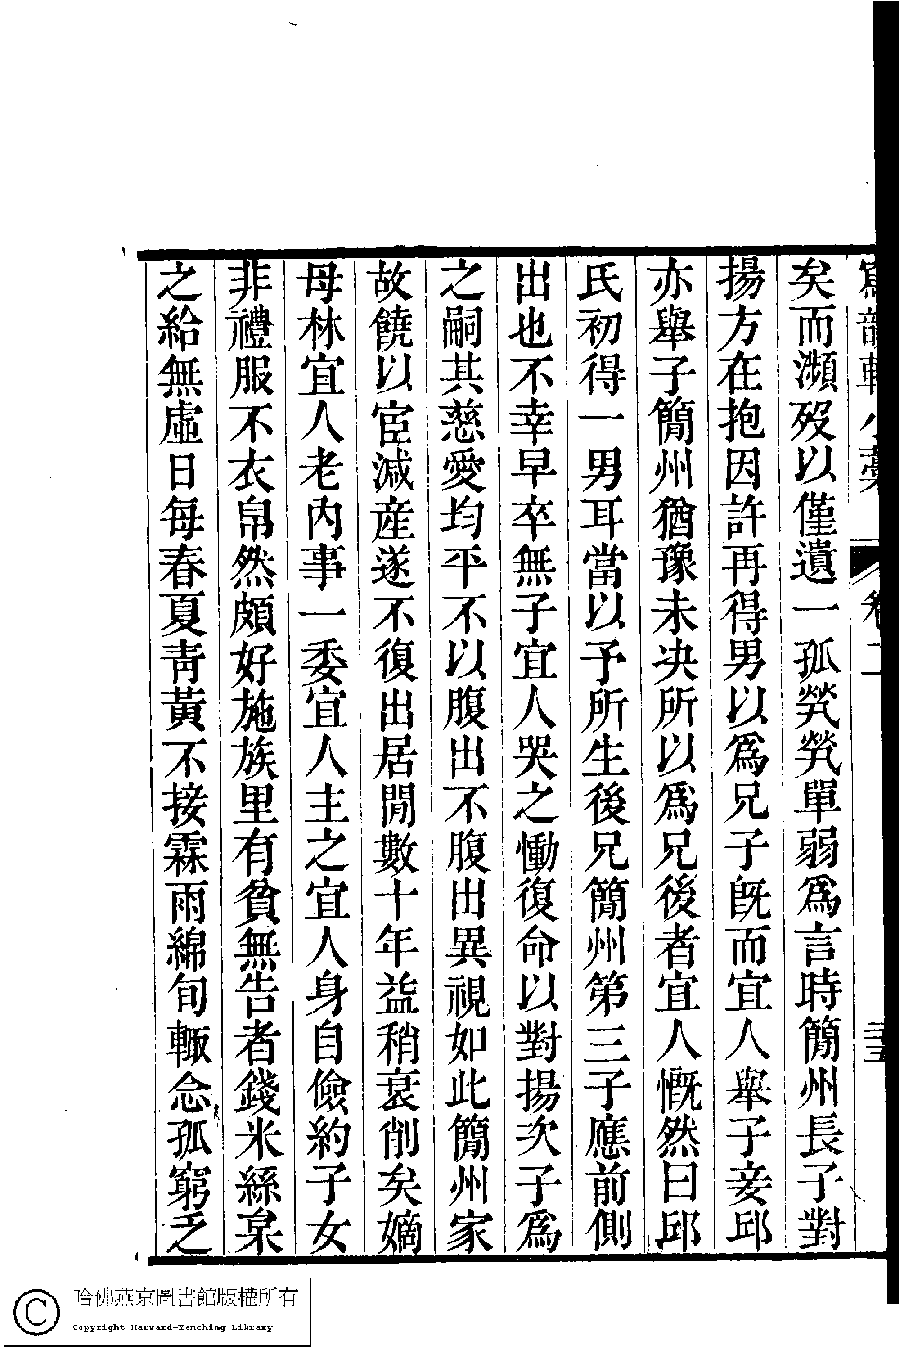 矣而瀕歿以僅遺一孤煢煢單弱爲言時簡州長子對
揚方在抱因許再得男以爲兄子旣而宜人舉子妾邱
亦舉子簡州猶豫未决所以爲兄後者宜人慨然曰邱
氏初得一男耳當以予所生後兄簡州第三子應前側
出也不幸早卒無子宜人哭之慟復命以對揚次子爲
之嗣其慈愛均平不以腹出不腹出異視如此簡州家
故饒以宦減産遂不復出居閒數十年益稍衰削矣嫡
母林宜人老內事一委宜人主之宜人身自儉約子女
非禮服不衣帛然頗好施族里有貧無告者錢米絲枲
之給無虛日每春夏靑黃不接霖雨綿旬輙念孤窮乏
哈佛燕京圖書館版權所有
Copyright Harvard-Yenching Library